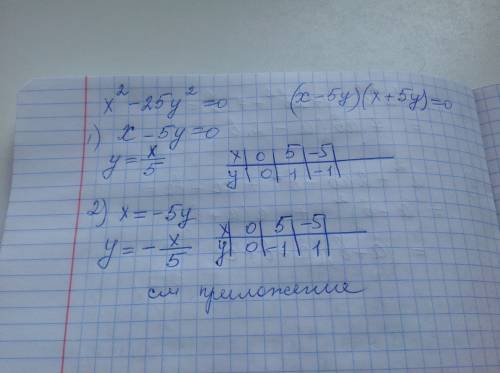 x² - 25y² = 0 (x-5y)(x+5y)=0
1) x - 5y = 0
y = x/5 x | 0 | 5 | -5 |
y | 0 | 1 | -1 |
2) x = -5y x | 0 | 5 | -5 |
y = - x/5 y | 0 | -1 | 1 |
см приложение